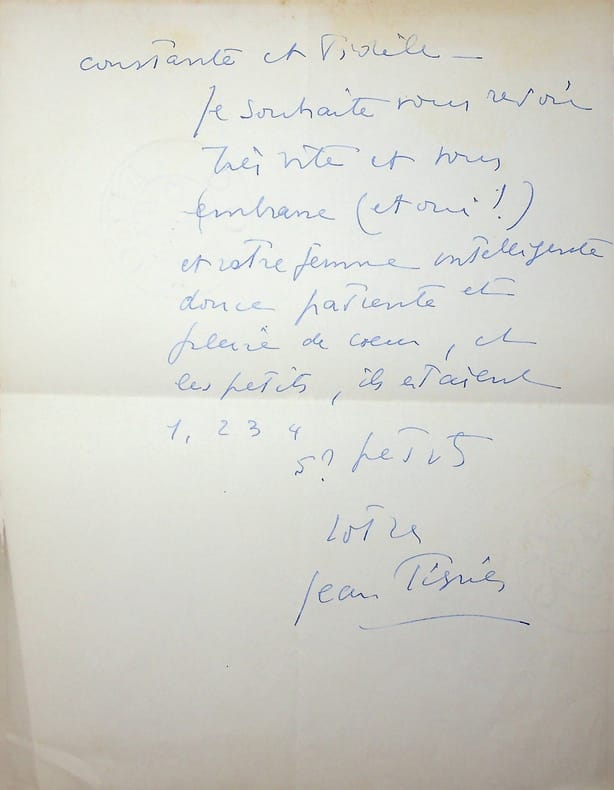 constante et fidèle —
Je souhaite vous revoir
très vite et vous
embrasse (et oui !)
et votre femme intelligente
douce patiente et
pleine de coeur, et
les petits, ils étaient
1, 2 3 4
5 ? petits
votre
Jean